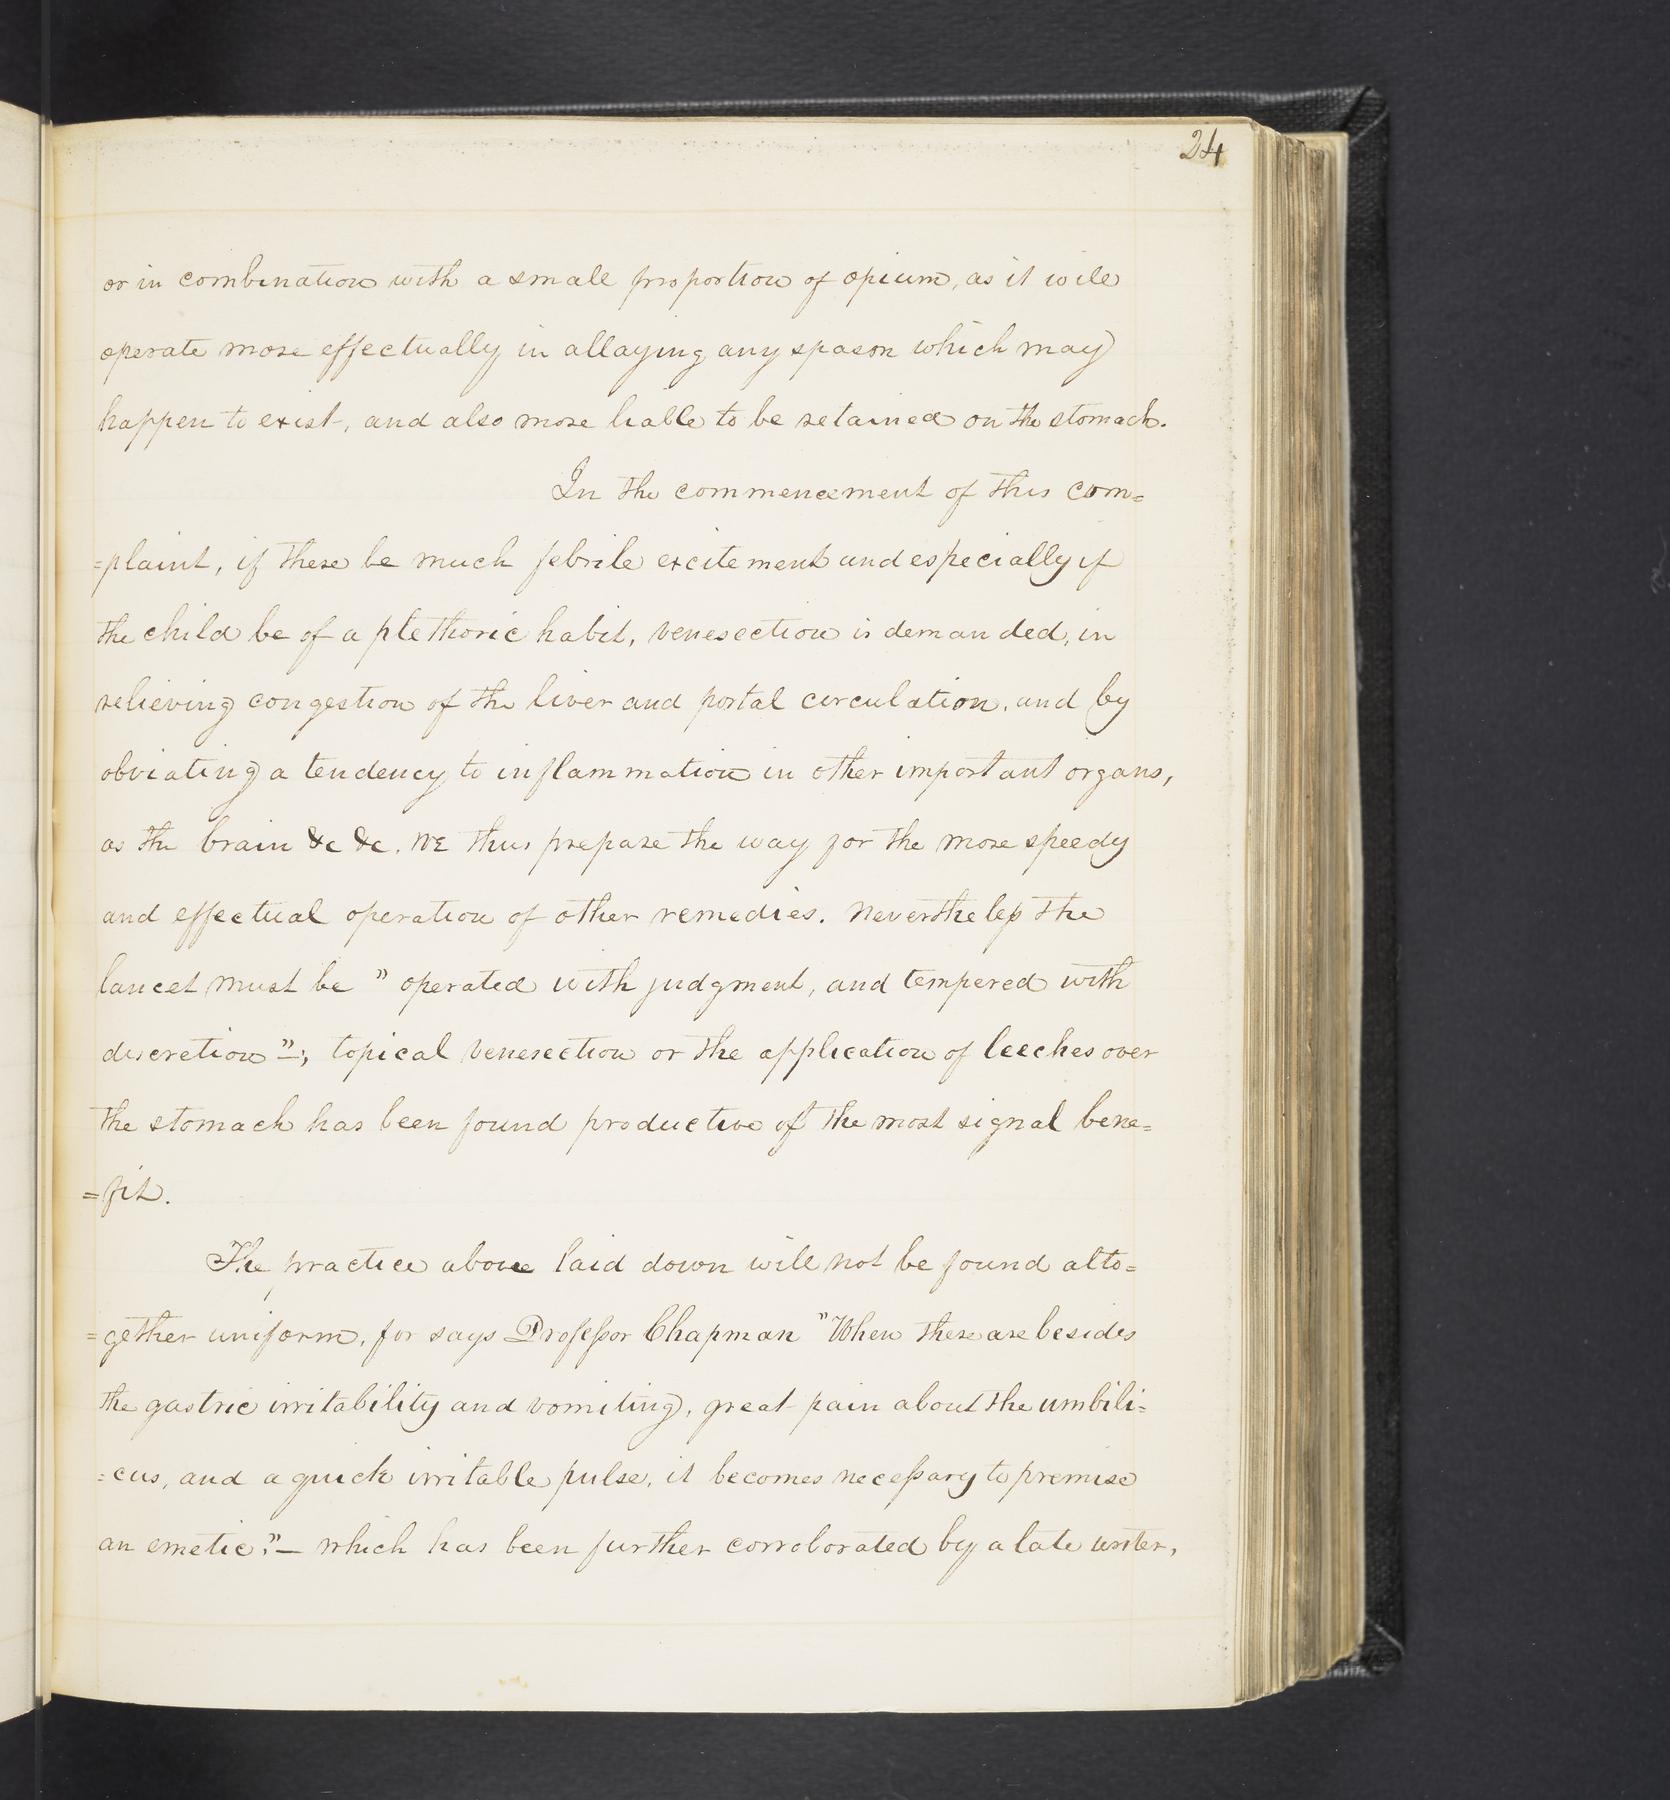 24
or in combination with a small proportion of opium, as it will
operate more effectually in allaying any spasm which may
happen to exist, and also more liable to be retained on the stomach.
In the commencement of this com=
=plaint, if there be much febrile excitement and especially if
the child be of a plethoric habit, venesection is demanded, in
relieving congestion of the liver and portal circulation, and by
obviating a tendency to inflammation in other important organs,
as the brain &c &c. we thus prepare the way for the more speedy
and effectual operation of other remedies. Nevertheleſs the
lancet must be "operated with judgment, and tempered with
discretion"—; topical venesection or the application of leeches over
the stomach has been found productive of the most signal bene=
=fit.
The practice above laid down will not be found alto=
=gether uniform, for says Profeſsor Chapman "When there are besides
the gastric irritability and vomiting, great pain about the umbili=
=cus, and a quick irritable pulse, it becomes neceſsary to premise
an emetic,"— which has been further corroborated by a late writer,